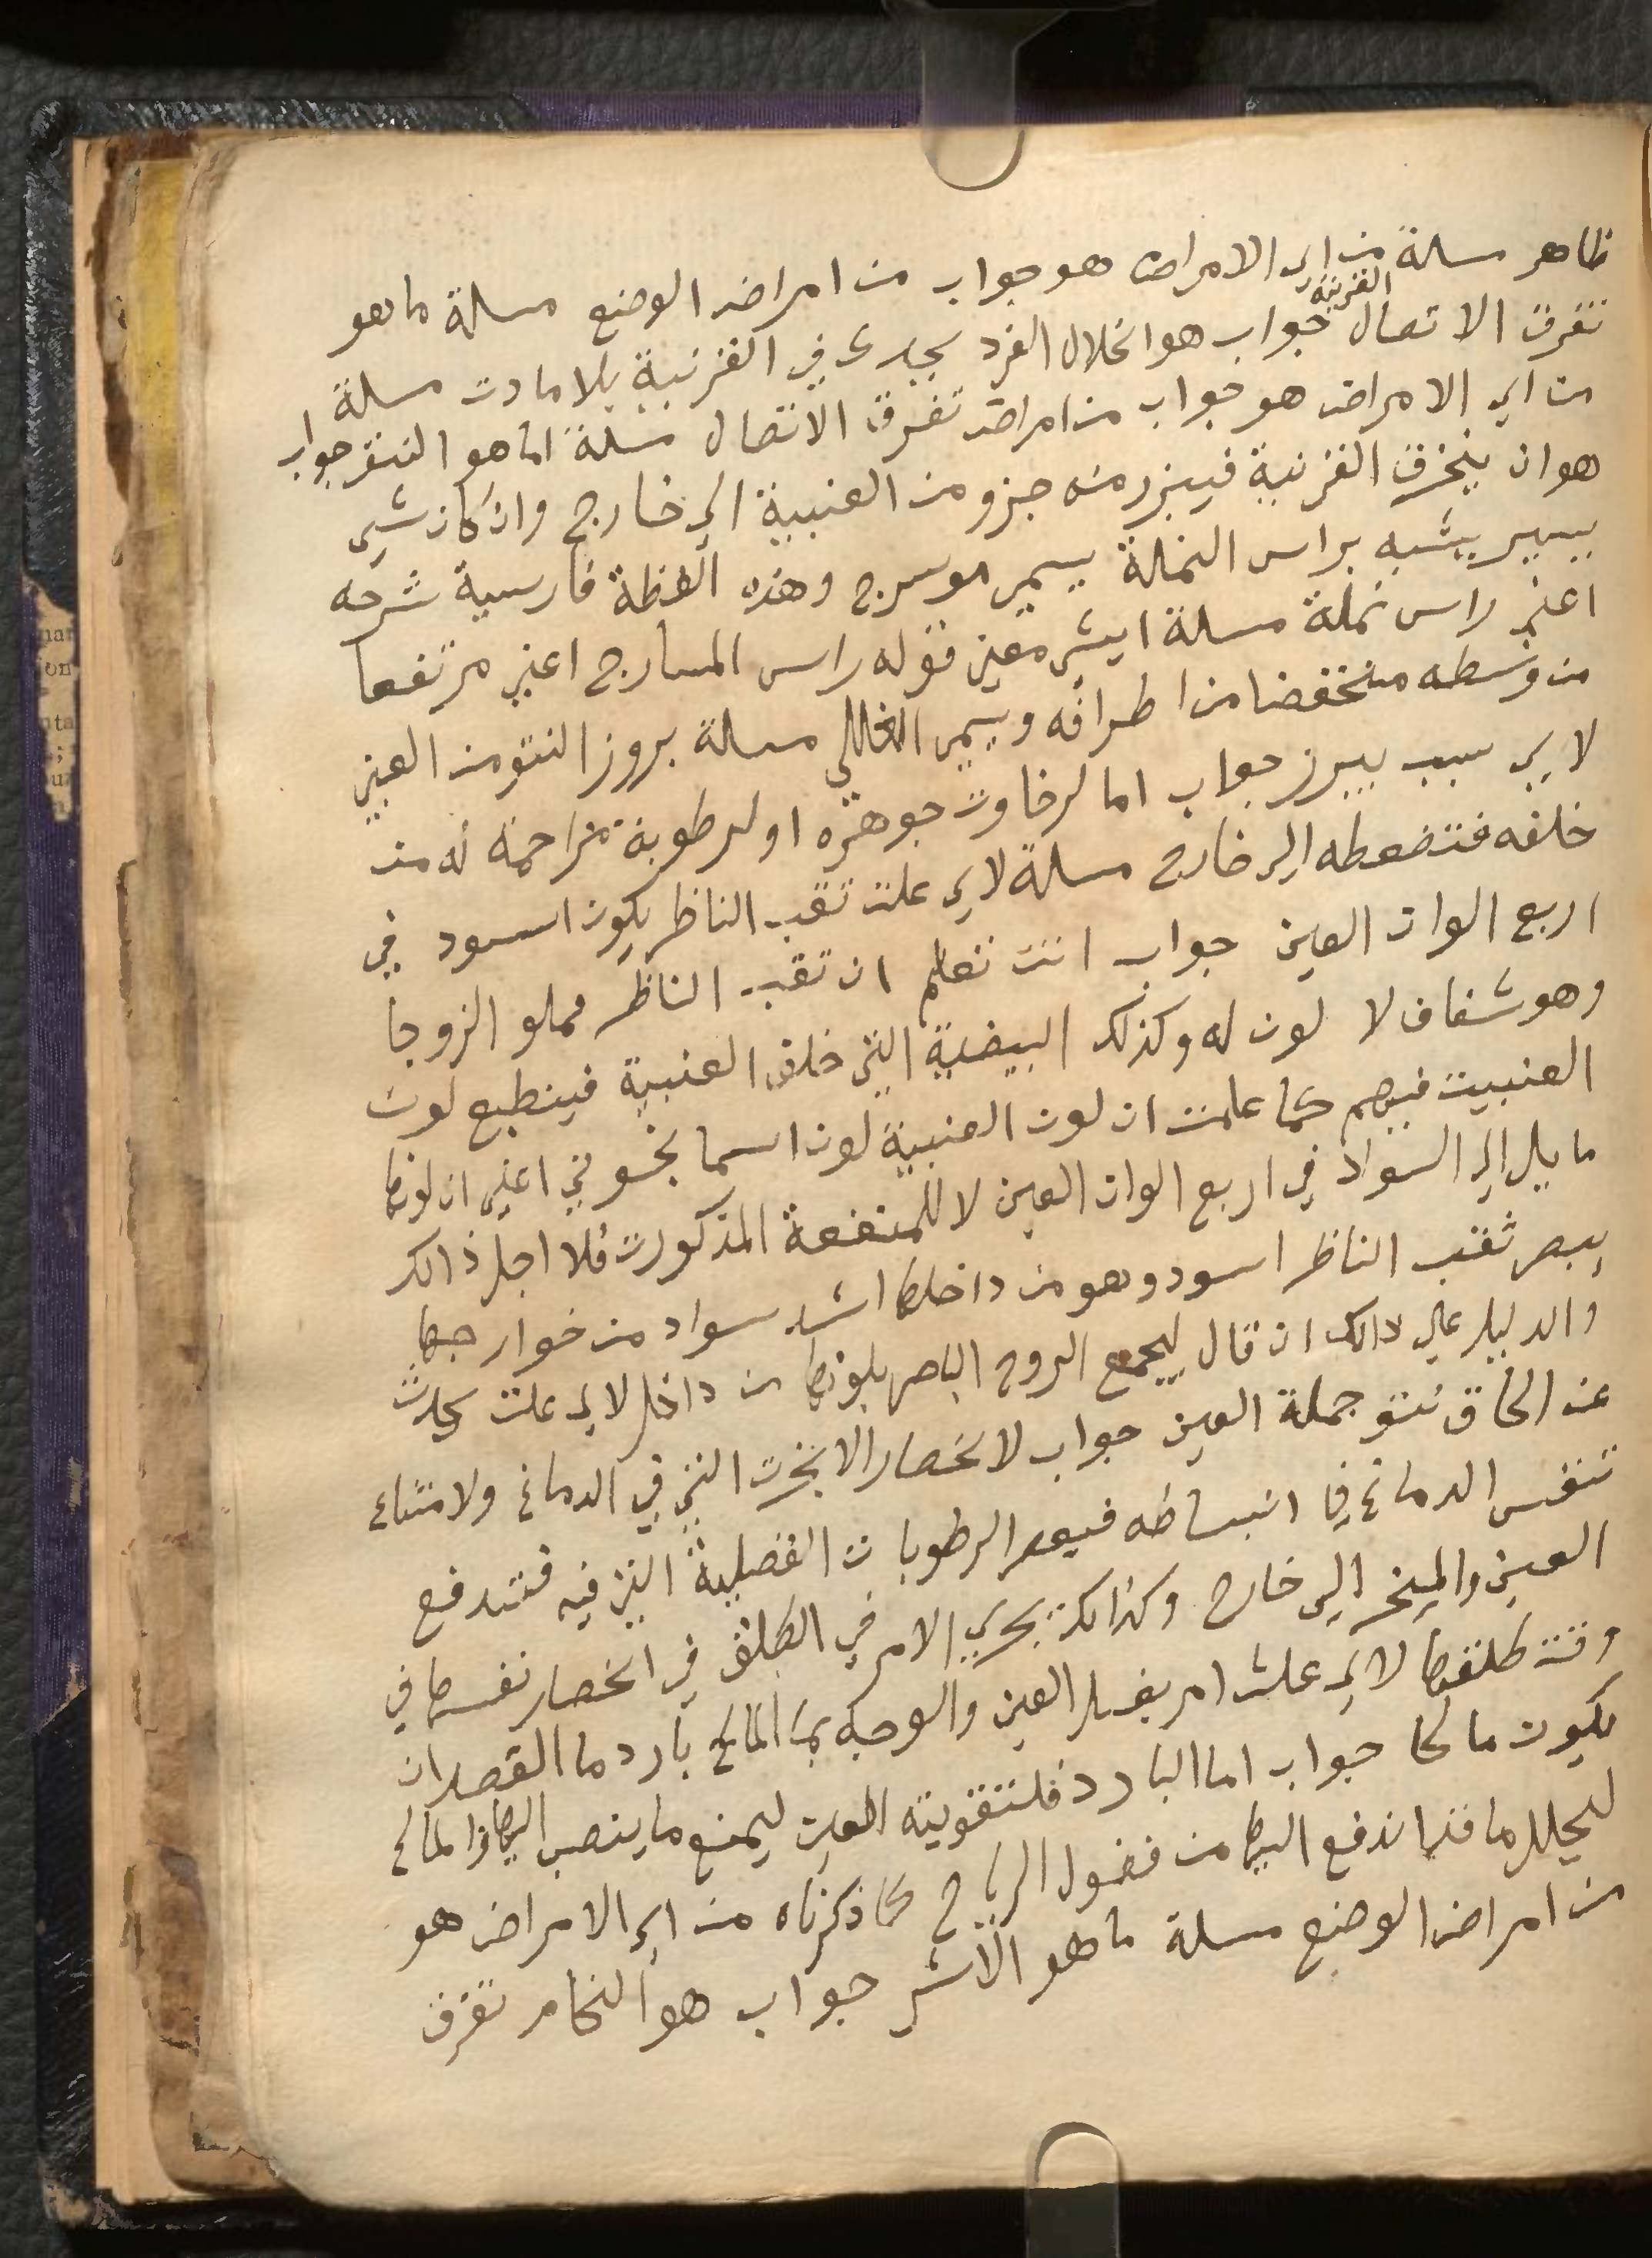 ظاهر مسلة من اي الامراض هو جواب من امراض الوضع مسلة ما هو
القرنية
تفرق الاتصال جواب هو انحلال الفرد يجري في القرنية بلا مادت مسلة
من اي الامراض هو جواب من امراض تفرق الاتصال مسلة اما هو النتو جواب
هو ان ينخرق القرنية فيبرز منه جزو من العنبية الي خارج وان كان شي
يسير يشبه براس النملة يسمي موسرج وهذه الفظة فارسية شرحه
اعني راس نملة مسلة ايش معني قوله راس المسارج اعني مرتفعا
من وسطه منخفضا من اطرافه ويسمي مسلة بروز النتو من العين
لاي سبب يبرز جواب اما لرخاوت جوهره او لرطوبة مزاحمة له من
خلفه فتضغطه الي خارج مسلة لاي علت تقب الناظر يكون اسود في
اربع الوان العين جواب انت تعلم ان تقب الناظر مملو الزوجا
وهو شفاف لا لون له وكذلك البيضية التي خلف العنبية فينطبع لون
العنبيت فيهم كما علمت ان لون العنبية لون اسما نجوني اعني ان لونها
مايل الي السواد في اربع الوان العين لا للمنفعة المذكورت فلا اجل ذالك
يبصر ثقب الناظر اسود وهو من داخلها اشد سواد من خوارجها
والدليل علي دالك ان قال ليجمع الروح الباصر بلونها من داخل لاي علت يحدث
عند الخناق نتو جملة العين جواب لانحصار الابخرت التي في الدماغ ولامتناع
تنفس الدماغ في انبساطه فيعصر الرطوبات الفضلية التي فيه فتندفع
العين والمنخر الي خارج وكذالك يجري الامر في الطلق في انحصار نفسها في
وقت طلقها لاي علت امر بغسل العين والوجه بما المالح بارد ما القصد ان
يكون مالحا جواب اما البارد فلتقويته العين ليمنع ما ينصب اليها والمالح
ليحلل ما قد اندفع اليها من فضول الرياح كما ذكرناه من اي الامراض هو
من امراض الوضع مسلة ما هو جواب هو تفرق